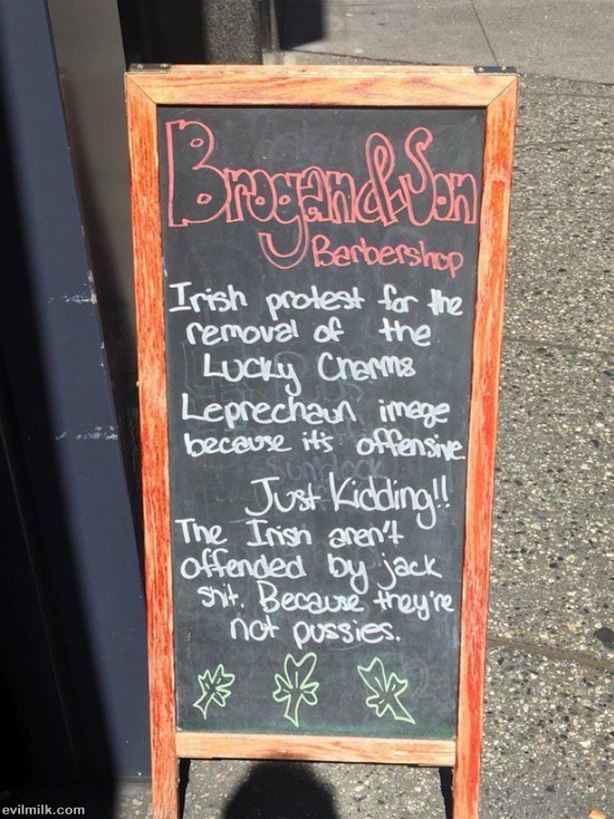 Brogan & Son
Barbershop
Irish protest for the
removal of the
Lucky Charms
Leprechaun image
because it's offensive
Just Kidding!!
The Irish aren't
offended by jack
shit. Because they're
not pussies.
evilmilk.com